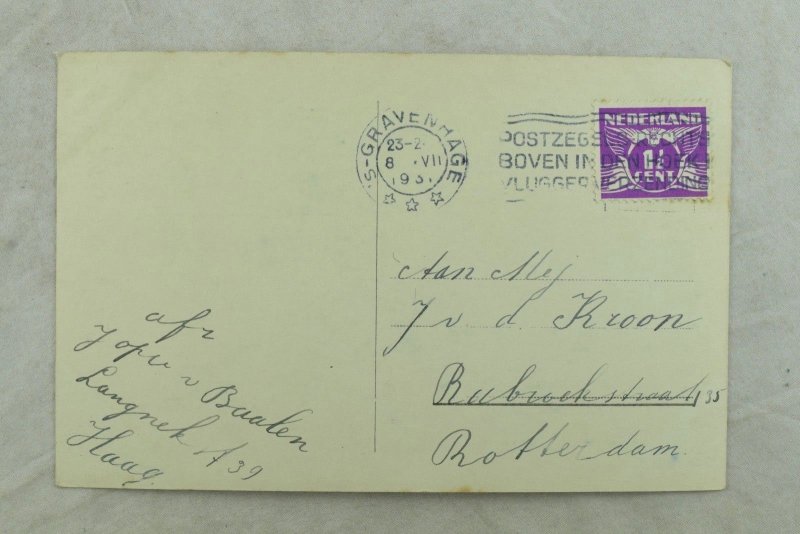 'S-GRAVENHAGE
23-2
8 VII
193
POSTZEGEL
BOVEN IN DEN HOEK
VLUGGER
NEDERLAND
1½
CENT
Aan Mej
J v d. Kroon
Rubroekstraat 135
Rotterdam.
afz
Jopie v Baalen
Langnek st 39
Haag.